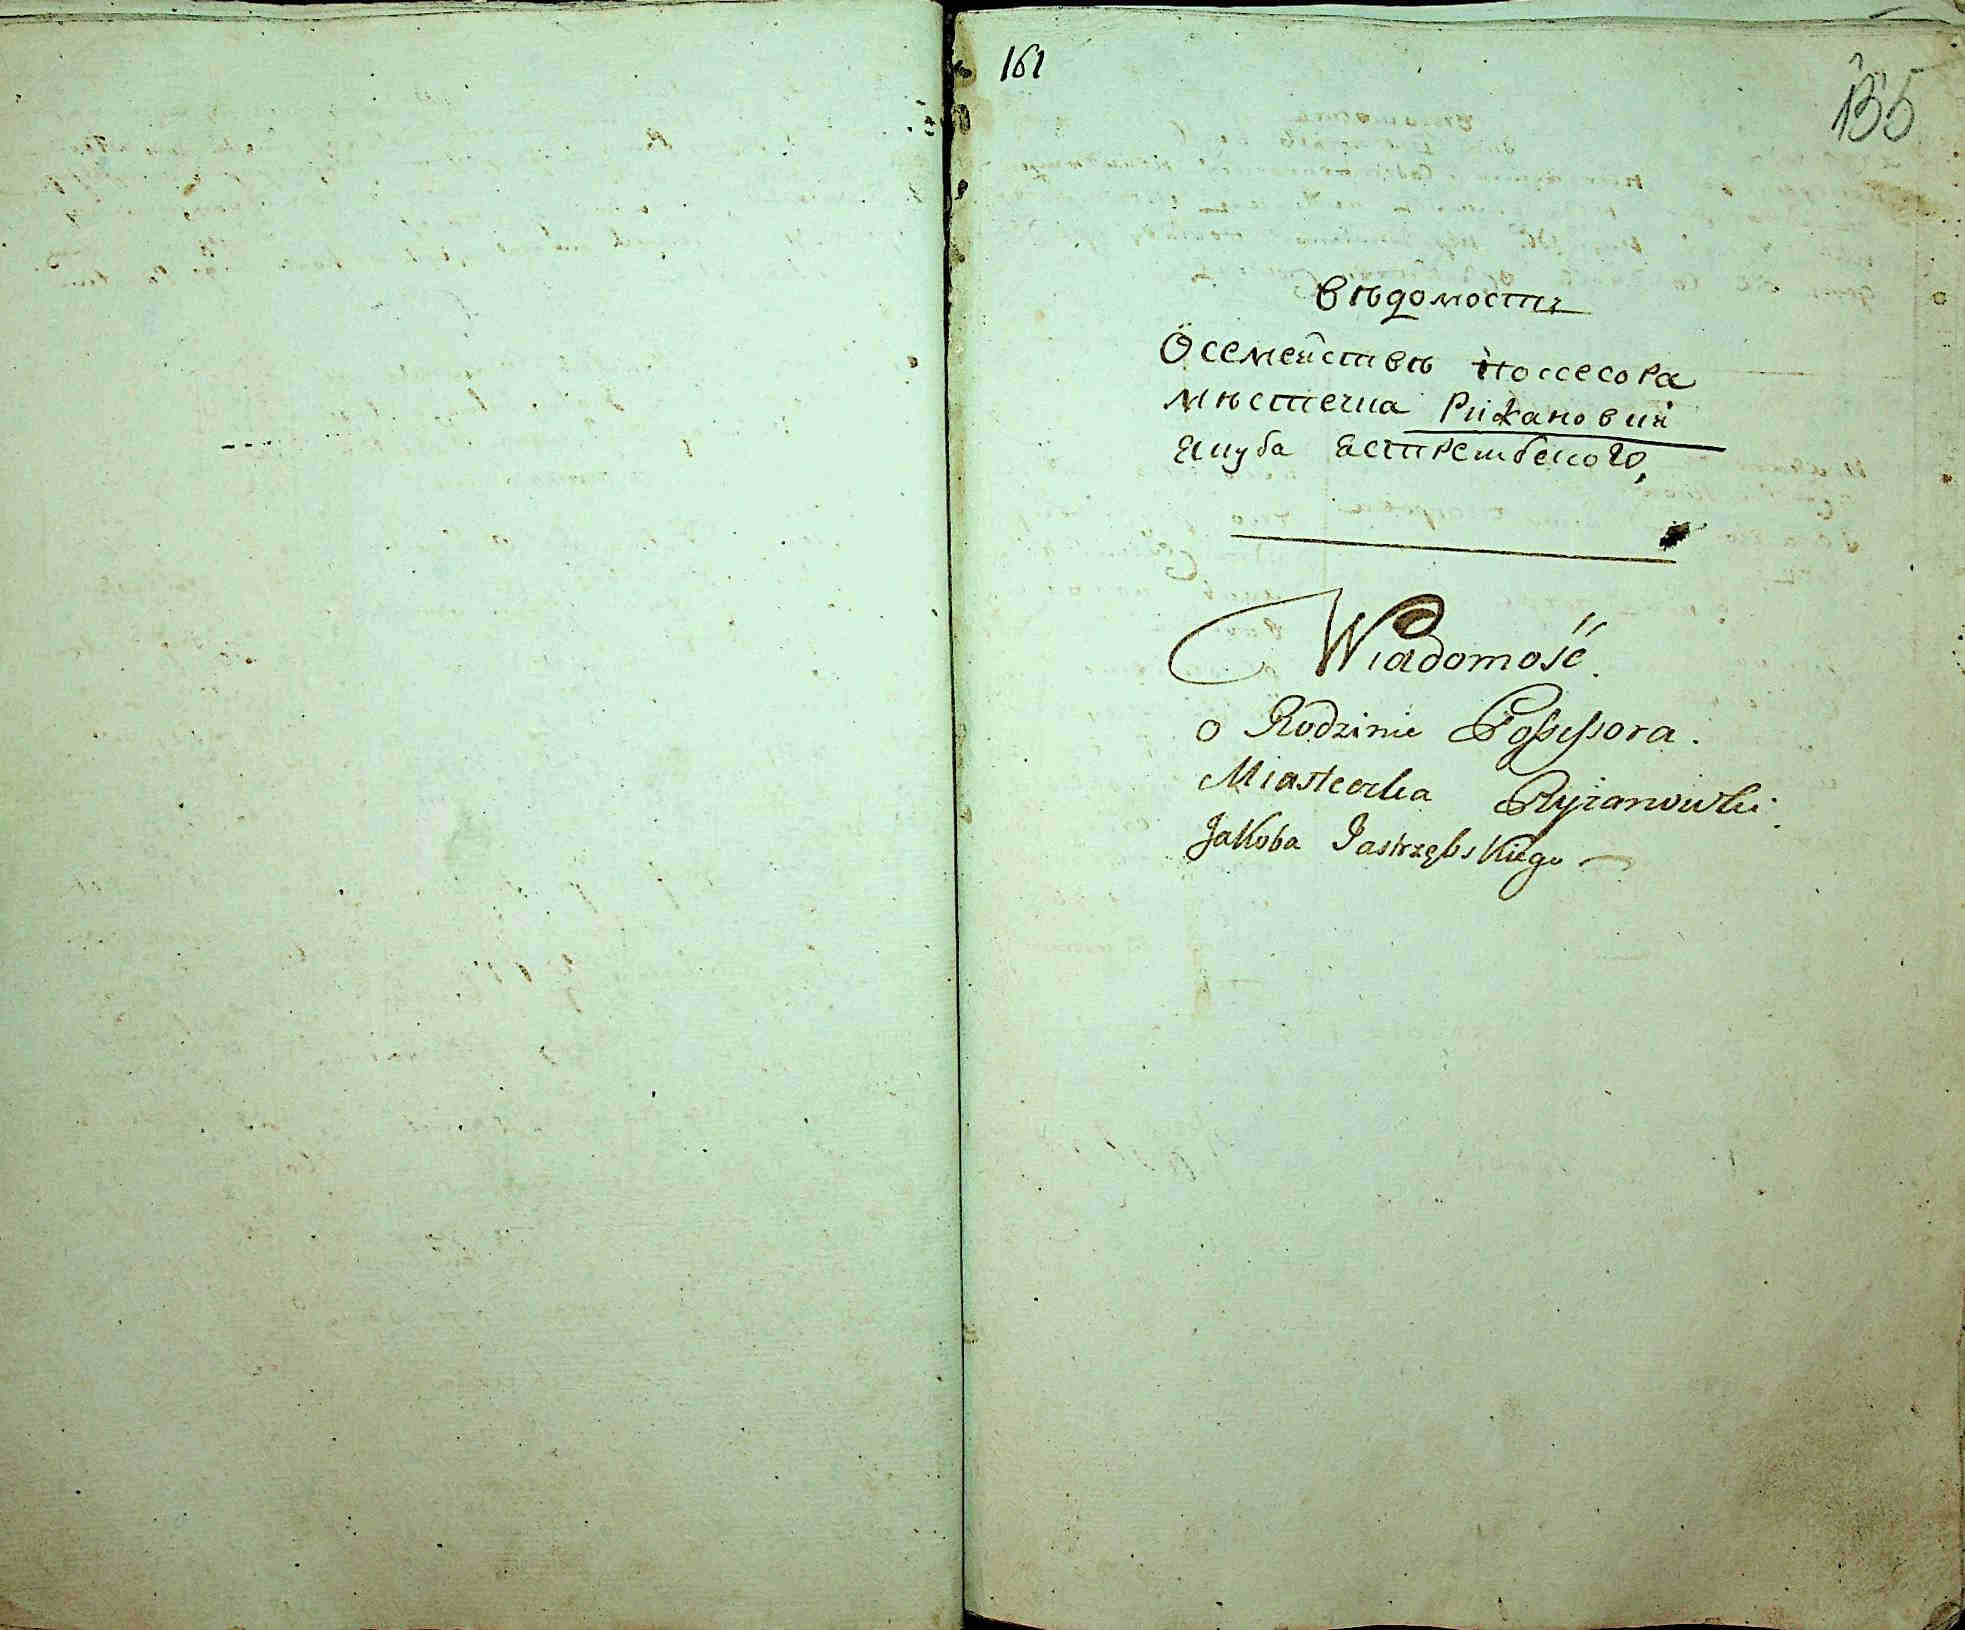 161
135
Вѣдомость
О семействѣ поссесора
мѣстечка Рижановки
Якуба Ястрембского,
Wiadomość
o Rodzinie Possessora.
Miasteczka Ryżanowki
Jakoba Jastrzębskiego